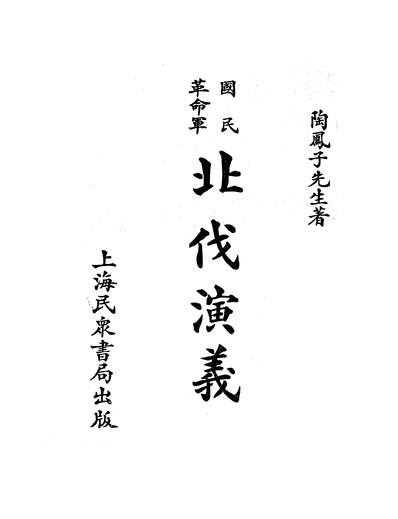 陶鳳子先生著
國民
革命軍
北伐演義
上海民衆書局出版